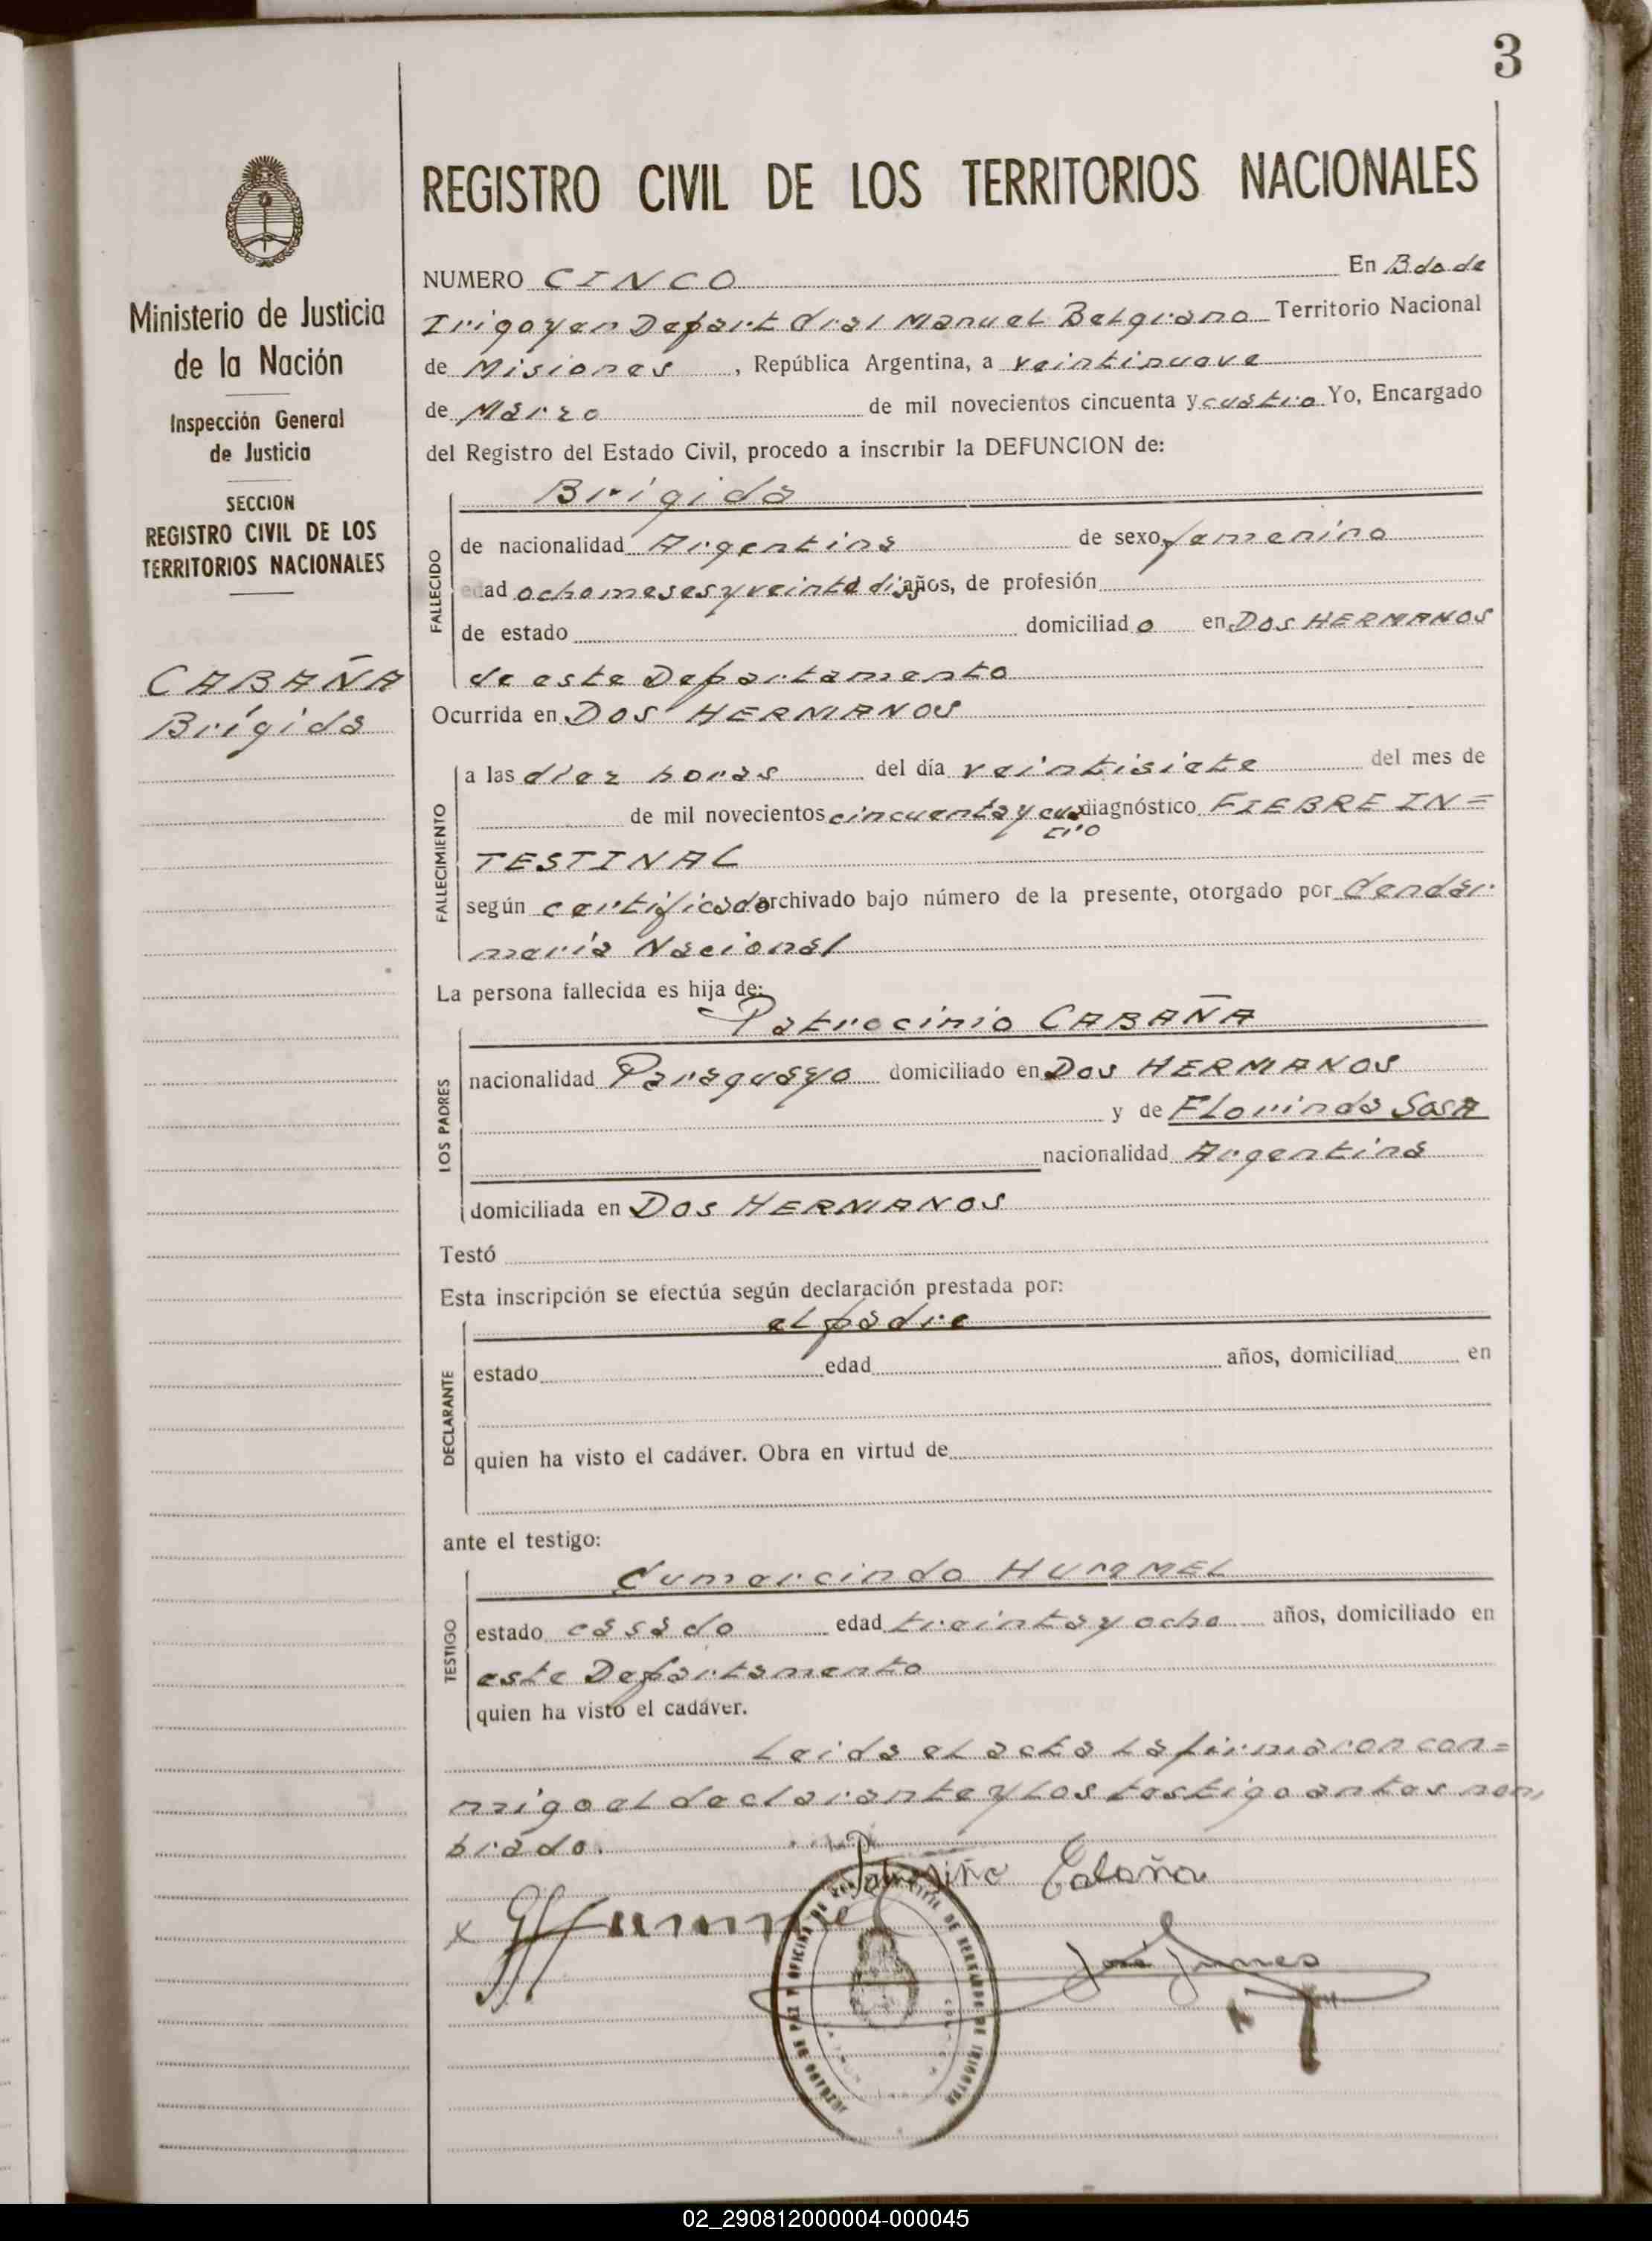 3
REGISTRO CIVIL DE LOS TERRITORIOS NACIONALES
Ministerio de Justicia
de la Nación
Inspección General
de Justicia
SECCION
REGISTRO CIVIL DE LOS
TERRITORIOS NACIONALES
CABAÑA
Brígida
NUMERO CINCO En Bdo de
Irigoyen Depart Gral Manuel Belgrano Territorio Nacional
de Misiones, República Argentina, a veintinueve
de Marzo de mil novecientos cincuenta y cuatro Yo, Encargado
del Registro del Estado Civil, procedo a inscribir la DEFUNCION de:
Brígida
FALLECIDO
de nacionalidad Argentina de sexo femenino
edad ocho meses y veinte días años, de profesión
de estado domiciliado en DOS HERMANOS
de este Departamento
Ocurrida en DOS HERMANOS
FALLECIMIENTO
a las diez horas del día veintisiete del mes de
de mil novecientos cincuenta y cua diagnóstico FIEBRE IN=
tro
TESTINAL
según certificado archivado bajo número de la presente, otorgado por Gendar
mería Nacional
La persona fallecida es hija de:
Patrocinio CABAÑA
LOS PADRES
nacionalidad Paraguayo domiciliado en Dos HERMANOS
y de Florinda SosA
nacionalidad Argentina
domiciliada en DOS HERMANOS
Testó
Esta inscripción se efectúa según declaración prestada por:
el padre
DECLARANTE
estado edad años, domiciliad en
quien ha visto el cadáver. Obra en virtud de
ante el testigo:
Gumercindo HUMMEL
TESTIGO
estado casado edad treinta y ocho años, domiciliado en
este Departamento
quien ha visto el cadáver.
Leida el acta la firmaron con=
migo el declarante y los testigo antes nom
brado.
Cabaña
x GHummel
JUZGADO DE PAZ Y OFICINA DE REGISTRO CIVIL DE BERNARDO DE IRIGOYEN
02_290812000004-000045